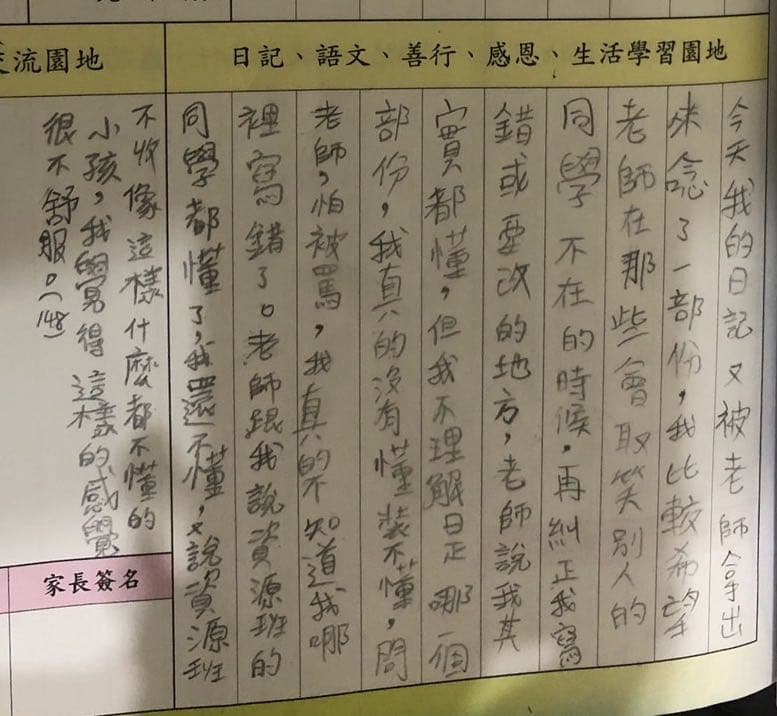 日記、語文、善行、感恩、生活學習園地
今天我的日記又被老師拿出
來唸了一部份，我比較希望
老師在那些會取笑別人的
同學不在的時候，再糾正我寫
錯或要改的地方，老師說我其
實都懂，但我不理解日正哪一個
部份，我真的沒有懂裝不懂，問
老師，怕被罵，我真的不知道我哪
裡寫錯了。老師跟我說資源班的
同學都懂了，我還不懂，又說資源班
流園地
不收像這樣什麼都不懂的
小孩，我覺得這樣的感覺
很不舒服。(148)
家長簽名